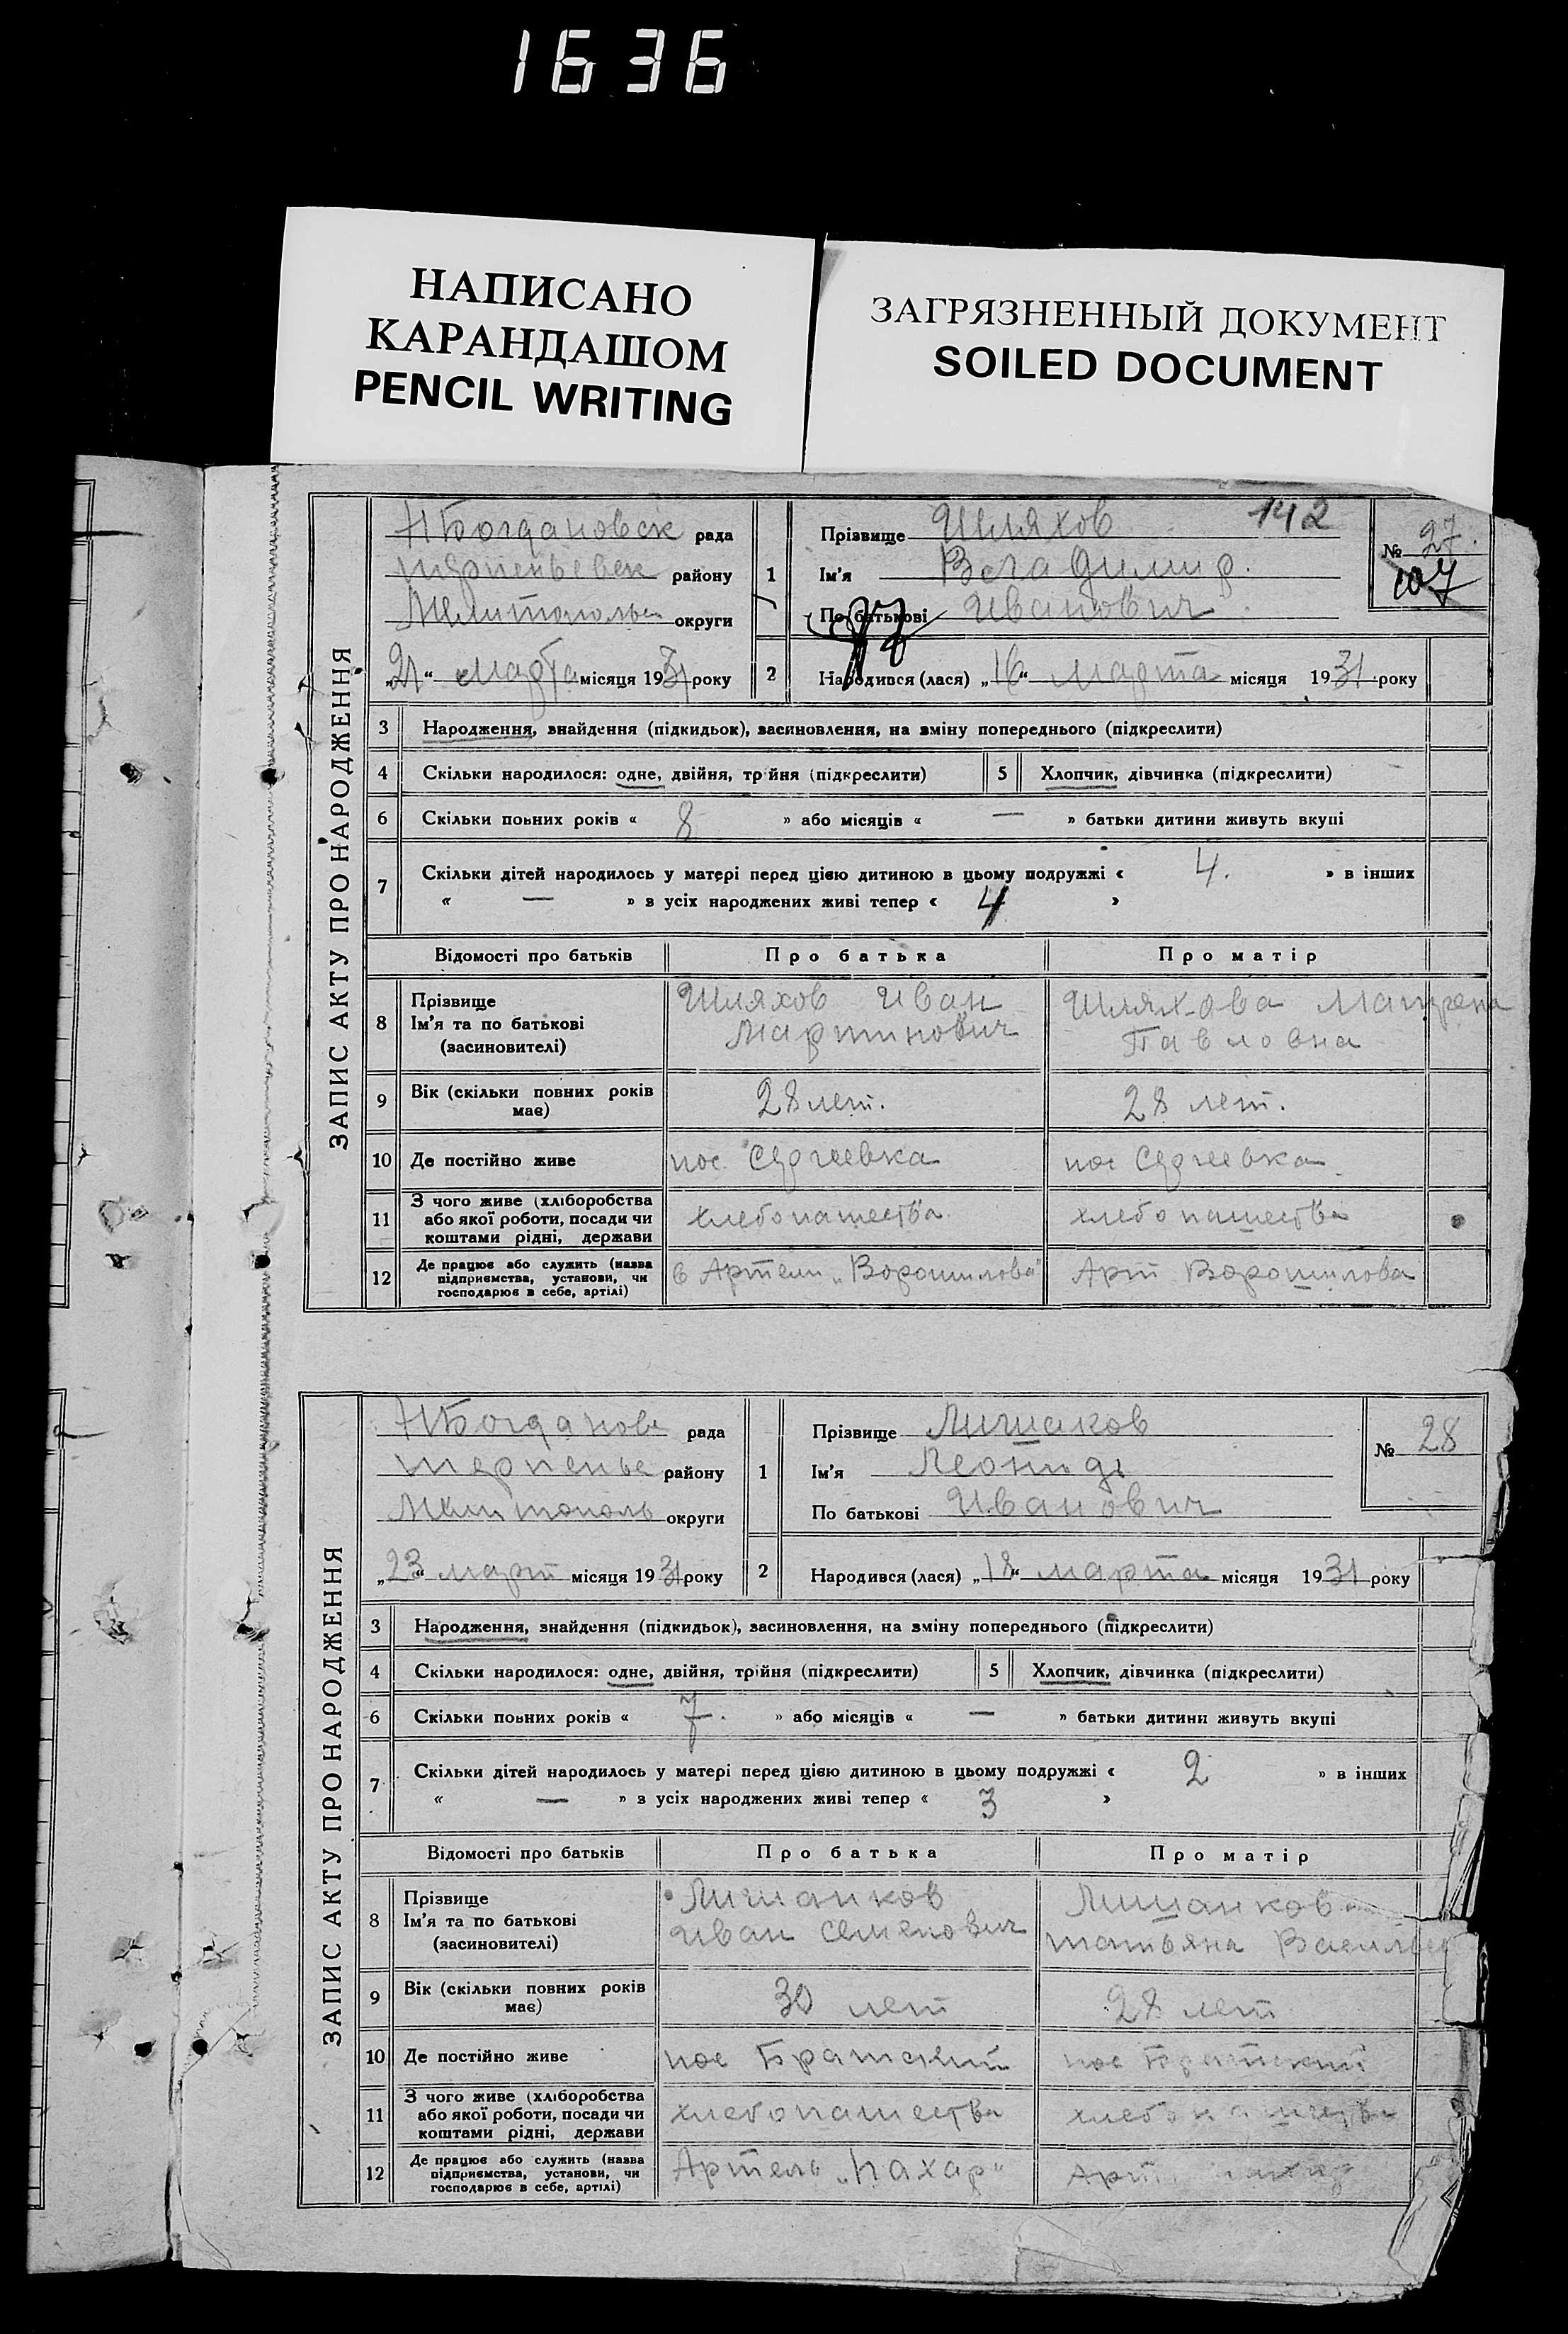 1636
НАПИСАНО
КАРАНДАШОМ
PENCIL WRITING
ЗАГРЯЗНЕННЫЙ ДОКУМЕНТ
SOILED DOCUMENT
ЗАПИС АКТУ ПРО НАРОДЖЕННЯ
НБогдановск рада
району
округи
„21“ марта місяця 1931 року
1
Прізвище Шляхов 142
Ім'я Владимир.
По батькові Иванович
№ 27.
107
2 Народився (лася) „16“ марта місяця 1931 року
3 Народження, знайдення (підкидьок), засиновлення, на зміну попереднього (підкреслити)
4 Скільки народилося: одне, двійня, трійня (підкреслити) 5 Хлопчик, дівчинка (підкреслити)
6 Скільки повних років « 8 » або місяців « — » батьки дитини живуть вкупі
7 Скільки дітей народилось у матері перед цією дитиною в цьому подружжі « 4. » в інших
« — » з усіх народжених живі тепер « 4 »
Відомості про батьків Про батька Про матір
8 Прізвище
Ім'я та по батькові
(засиновителі)
Шляхов Иван
Мартинович
Шляхова Матрена
Павловна
9 Вік (скільки повних років
має)
28 лет.
28 лет.
10 Де постійно живе пос. Сергеевка пос Сергеевка
11 З чого живе (хліборобства
або якої роботи, посади чи
коштами рідні, держави
хлебопашества
хлебопашества
12 Де працює або служить (назва
підприємства, установи, чи
господарює в себе, артілі)
в Артели „Ворошилова“
Арт Ворошилова
ЗАПИС АКТУ ПРО НАРОДЖЕННЯ
НБогданов рада
терпенье району
Мелитополь округи
„23“ март місяця 1931 року
1
Прізвище Лишаков
Ім'я Леонид
По батькові Иванович
№ 28
2 Народився (лася) „18“ марта місяця 1931 року
3 Народження, знайдення (підкидьок), засиновлення, на зміну попереднього (підкреслити)
4 Скільки народилося: одне, двійня, трійня (підкреслити) 5 Хлопчик, дівчинка (підкреслити)
6 Скільки повних років « 7. » або місяців « — » батьки дитини живуть вкупі
7 Скільки дітей народилось у матері перед цією дитиною в цьому подружжі « 2 » в інших
« — » з усіх народжених живі тепер « 3 »
Відомості про батьків Про батька Про матір
8 Прізвище
Ім'я та по батькові
(засиновителі)
Лишанков
Иван Семенович
Лишанкова
татьяна
9 Вік (скільки повних років
має)
30 лет
28 лет
10 Де постійно живе пос Братский пос Братский
11 З чого живе (хліборобства
або якої роботи, посади чи
коштами рідні, держави
хлебопашества
хлебопашества
12 Де працює або служить (назва
підприємства, установи, чи
господарює в себе, артілі)
Артель „Пахар“
Арт